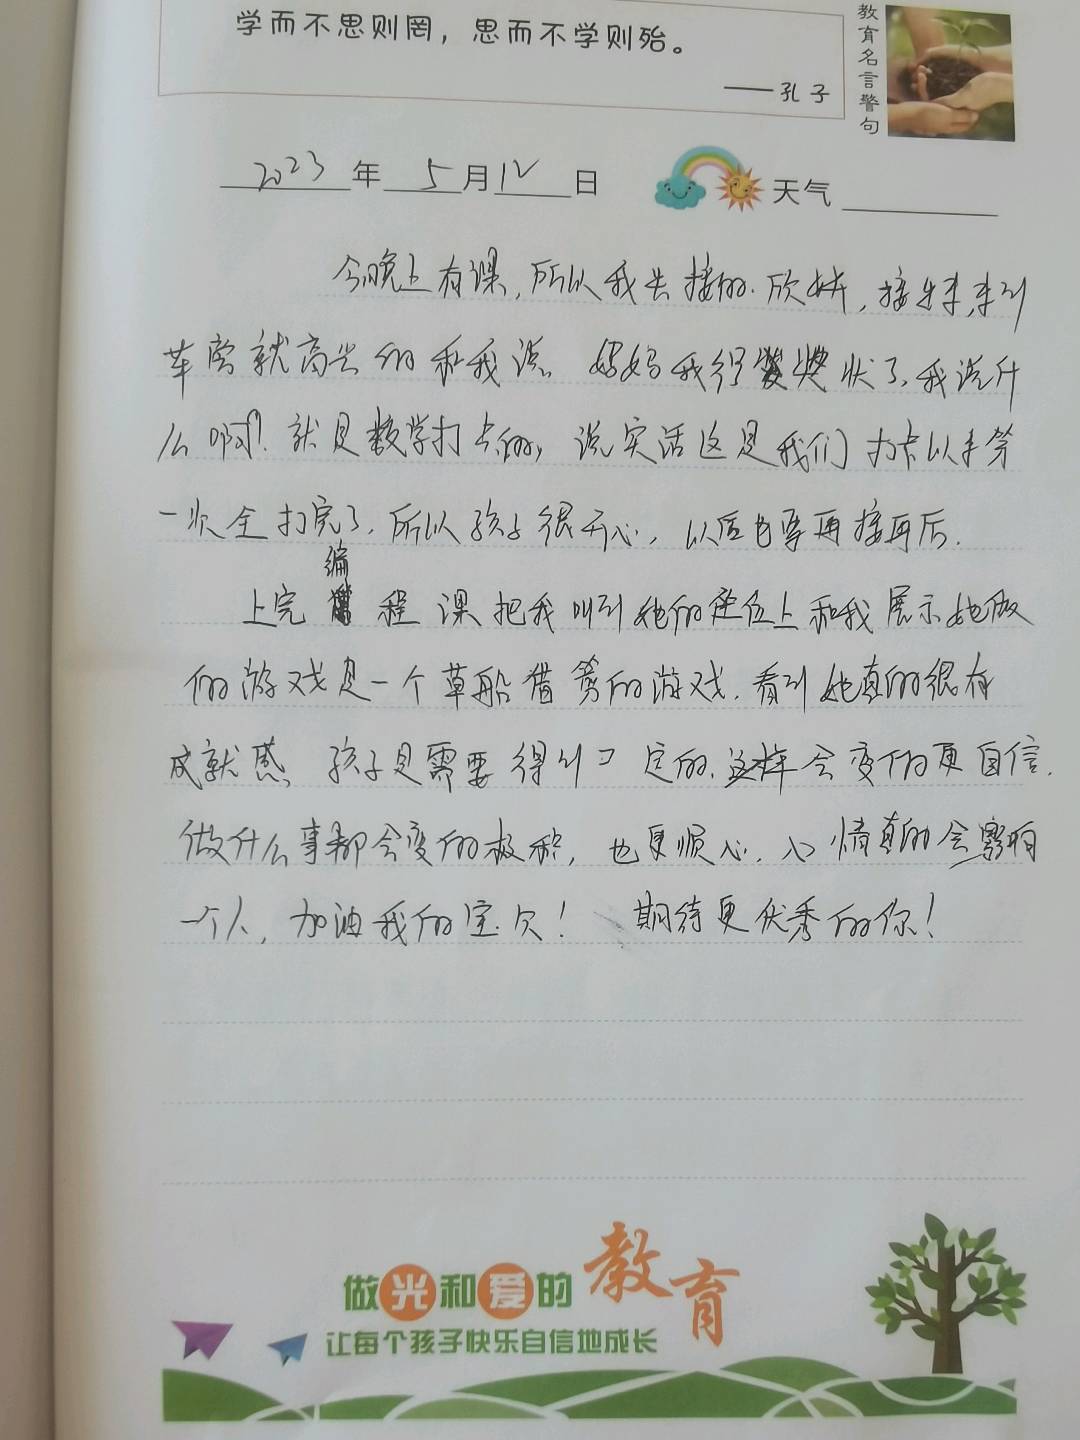 学而不思则罔，思而不学则殆。
——孔子
教育名言警句
2023年5月12日 天气
今晚上有课，所以我去接的.欣妍，接出来,来到
车旁就高兴的和我说。妈妈我得奖状了，我说什
么啊？就是数学打卡的，说实话这是我们打卡以来第
一次全打完了，所以孩子很开心，以后也要再接再后.
上完编程课把我叫到她的座位上和我展示她做
的游戏是一个草船借箭的游戏.看到她真的很有
成就感 孩子是需要得到肯定的.这样会变的更自信.
做什么事都会变的极积，也更顺心.心情真的会影响
一个人，加油我的宝贝！期待更优秀的你！
做光和爱的教育
让每个孩子快乐自信地成长